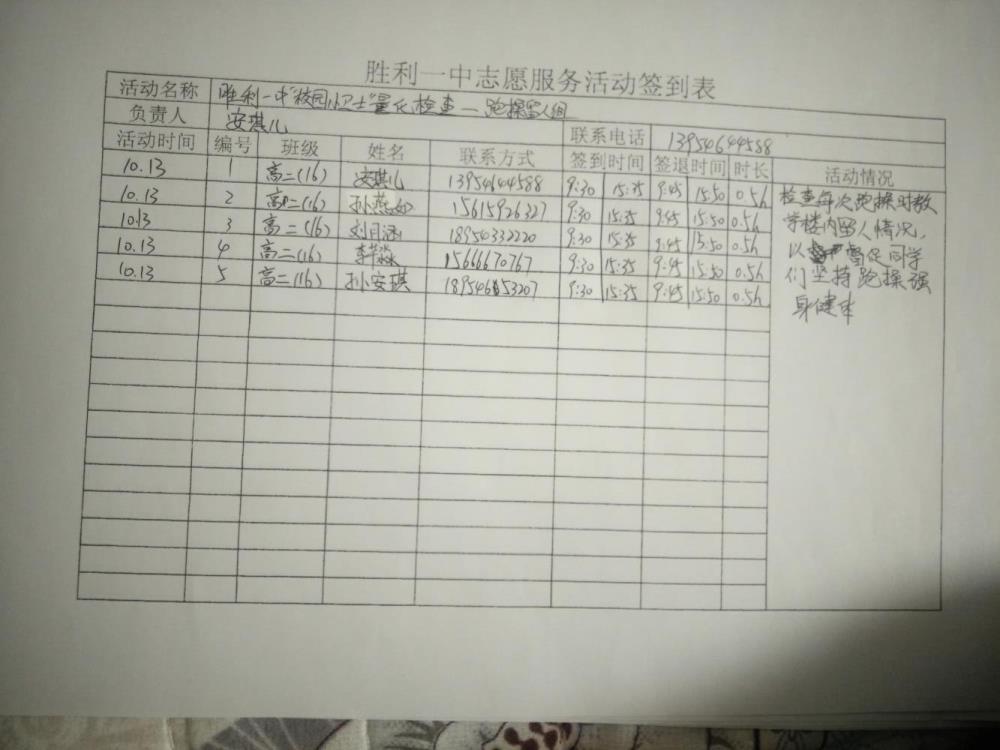 胜利一中志愿服务活动签到表
活动名称 胜利一中"校园小卫士"量化检查—跑操留人组
负责人 安琪儿 联系电话 13954644588
活动时间 编号 班级 姓名 联系方式 签到时间 签退时间 时长 活动情况
10.13 1 高二(16) 安琪儿 13954644588 9:30 15:35 9:45 15:50 0.5h
10.13 2 高二(16) 孙燕如 15615926327 9:30 15:35 9:45 15:50 0.5h
10.13 3 高二(16) 刘月涵 18954332220 9:30 15:35 9:45 15:50 0.5h
10.13 4 高二(16) 15666670767 9:30 15:35 9:45 15:50 0.5h
10.13 5 高二(16) 孙安琪 18954653207 9:30 15:35 9:45 15:50 0.5h
检查每次跑操时教
学楼内留人情况,
以督促同学
们坚持跑操强
身健体